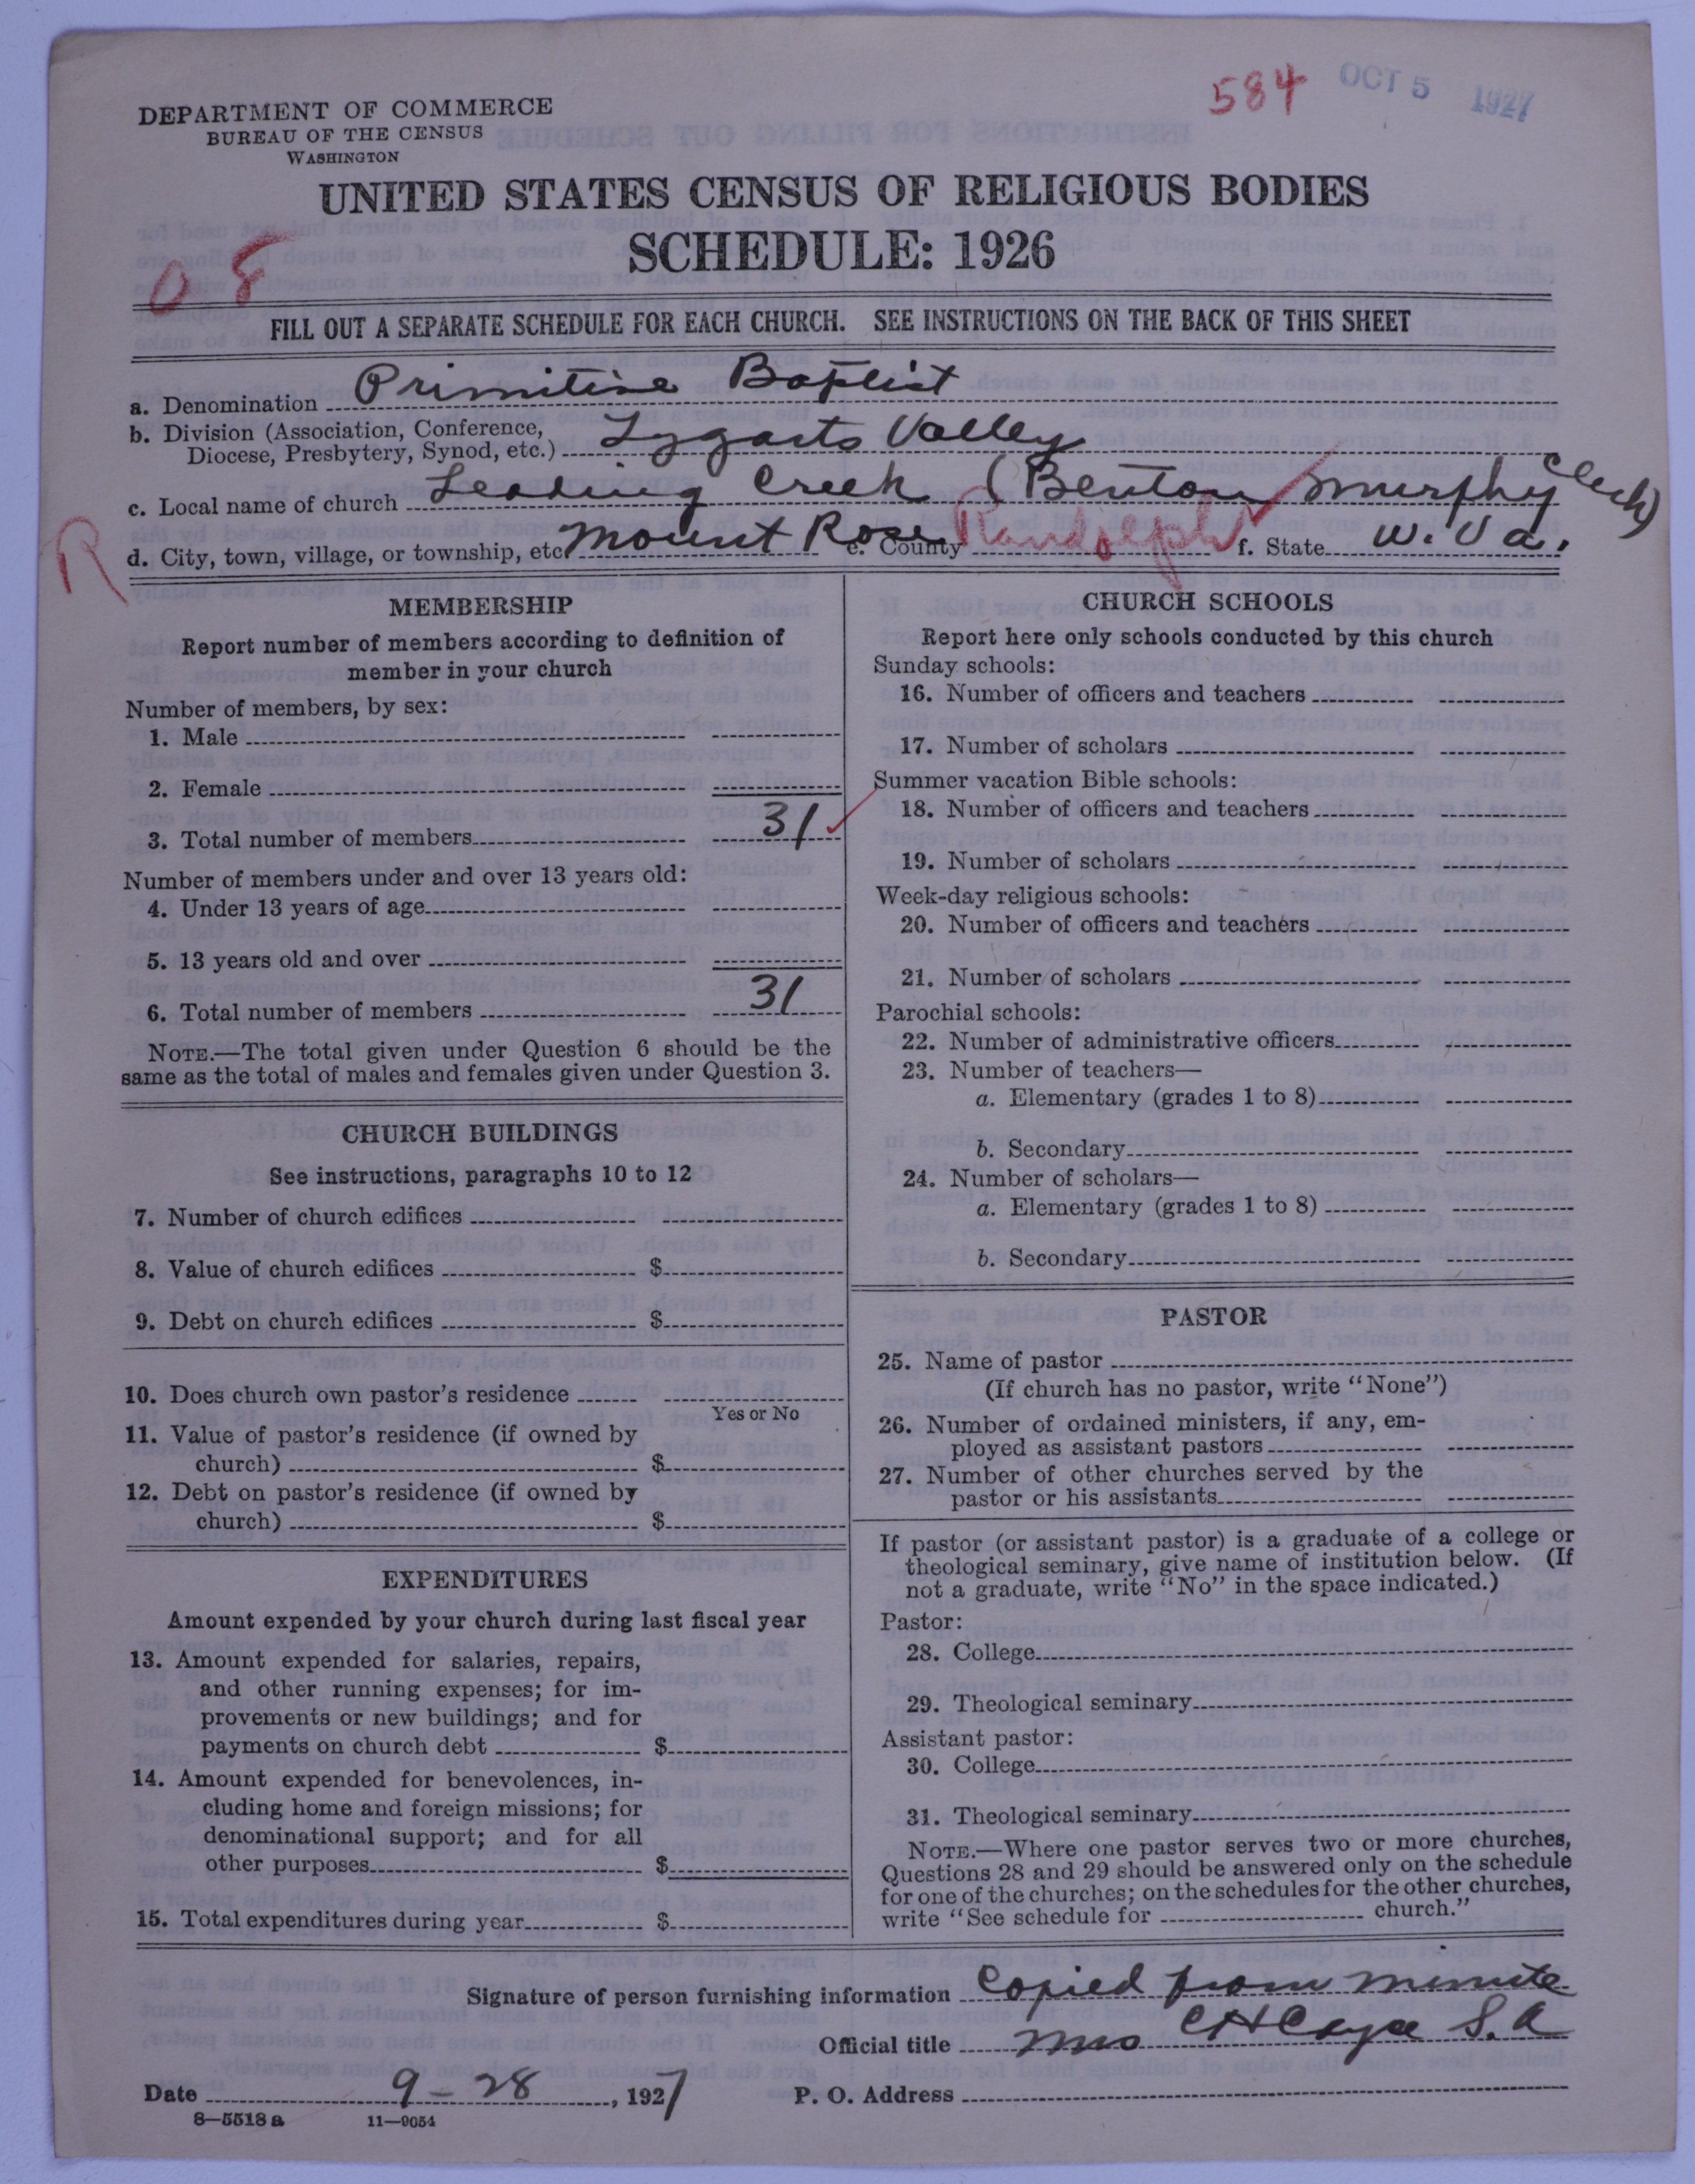 584 OCT 5 1927
DEPARTMENT OF COMMERCE
BUREAU OF THE CENSUS
WASHINGTON
UNITED STATES CENSUS OF RELIGIOUS BODIES
SCHEDULE: 1926
08
FILL OUT A SEPARATE SCHEDULE FOR EACH CHURCH. SEE INSTRUCTIONS ON THE BACK OF THIS SHEET
a. Denomination Primitive Baptist
b. Division (Association, Conference,
Diocese, Presbytery, Synod, etc.) Tygarts Valley
c. Local name of church Leading Creek (Benton Murphy Clerk)
R
d. City, town, village, or township, etc. Mount Rose e. County Randolph f. State W. Va.
MEMBERSHIP
Report number of members according to definition of
member in your church
Number of members, by sex:
1. Male
2. Female
3. Total number of members 31
Number of members under and over 13 years old:
4. Under 13 years of age
5. 13 years old and over
6. Total number of members 31
NOTE.—The total given under Question 6 should be the
same as the total of males and females given under Question 3.
CHURCH BUILDINGS
See instructions, paragraphs 10 to 12
7. Number of church edifices
8. Value of church edifices $
9. Debt on church edifices $
10. Does church own pastor's residence
Yes or No
11. Value of pastor's residence (if owned by
church) $
12. Debt on pastor's residence (if owned by
church) $
EXPENDITURES
Amount expended by your church during last fiscal year
13. Amount expended for salaries, repairs,
and other running expenses; for im-
provements or new buildings; and for
payments on church debt $
14. Amount expended for benevolences, in-
cluding home and foreign missions; for
denominational support; and for all
other purposes $
15. Total expenditures during year $
CHURCH SCHOOLS
Report here only schools conducted by this church
Sunday schools:
16. Number of officers and teachers
17. Number of scholars
Summer vacation Bible schools:
18. Number of officers and teachers
19. Number of scholars
Week-day religious schools:
20. Number of officers and teachers
21. Number of scholars
Parochial schools:
22. Number of administrative officers
23. Number of teachers—
a. Elementary (grades 1 to 8)
b. Secondary
24. Number of scholars—
a. Elementary (grades 1 to 8)
b. Secondary
PASTOR
25. Name of pastor
(If church has no pastor, write "None")
26. Number of ordained ministers, if any, em-
ployed as assistant pastors
27. Number of other churches served by the
pastor or his assistants
If pastor (or assistant pastor) is a graduate of a college or
theological seminary, give name of institution below. (If
not a graduate, write "No" in the space indicated.)
Pastor:
28. College
29. Theological seminary
Assistant pastor:
30. College
31. Theological seminary
NOTE.—Where one pastor serves two or more churches,
Questions 28 and 29 should be answered only on the schedule
for one of the churches; on the schedules for the other churches,
write "See schedule for church."
Signature of person furnishing information Copied from minute
Official title Mrs C H Cayce S. A
Date 9-28, 1927 P. O. Address
8—5518 a 11—9054